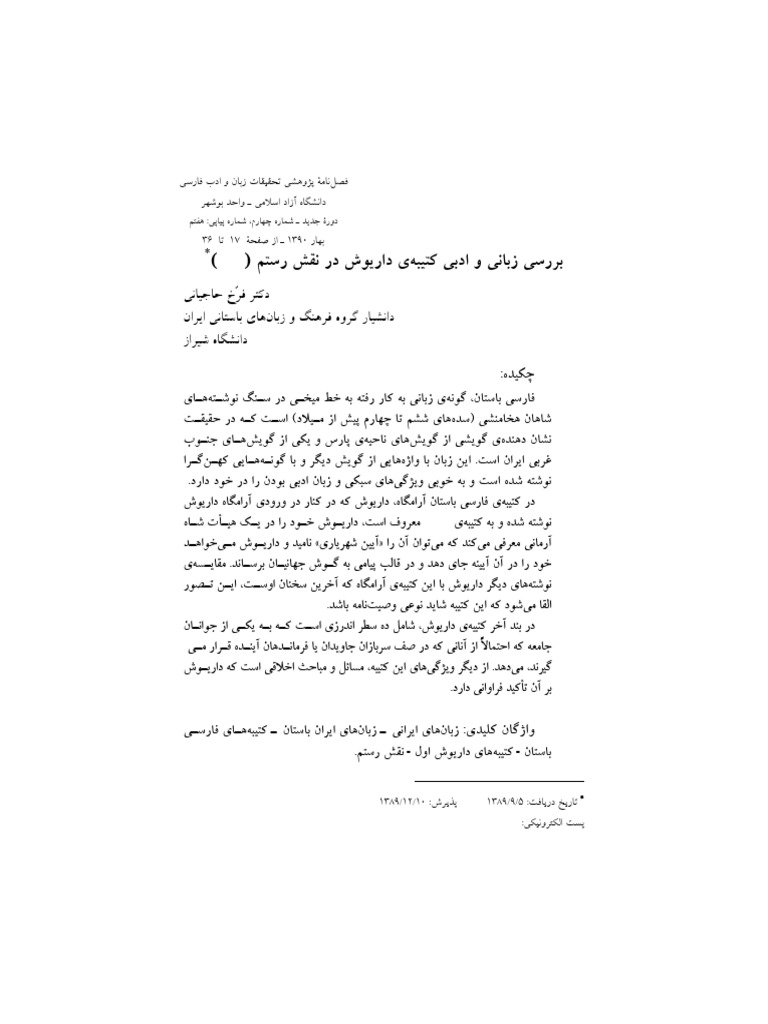 فصل‌نامهٔ پژوهشی تحقیقات زبان و ادب فارسی
دانشگاه آزاد اسلامی ـ واحد بوشهر
دورهٔ جدید ـ شماره چهارم، شماره پیاپی: هفتم
بهار ۱۳۹۰ ـ از صفحهٔ ۱۷ تا ۳۶
بررسی زبانی و ادبی کتیبه‌ی داریوش در نقش رستم ( )*
دکتر فرّخ حاجیانی
دانشیار گروه فرهنگ و زبان‌های باستانی ایران
دانشگاه شیراز
چکیده:
فارسی باستان، گونه‌ی زبانی به کار رفته به خط میخـی در سـنگ نوشـته‌هـای
شاهان هخامنشی (سده‌های ششم تا چهارم پیش از مـیلاد) اسـت کـه در حقیقـت
نشان دهنده‌ی گویشی از گویش‌های ناحیه‌ی پارس و یکی از گویش‌هـای جنـوب
غربی ایران است. این زبان با واژه‌هایی از گویش دیگر و با گونـه‌هـایی کهـن‌گـرا
نوشته شده است و به خوبی ویژگی‌های سبکی و زبان ادبی بودن را در خود دارد.
در کتیبه‌ی فارسی باستان آرامگاه، داریوش که در کنار در ورودی آرامگاه داریوش
نوشته شده و به کتیبه‌ی معروف است، داریـوش خـود را در یـک هیـأت شـاه
آرمانی معرفی می‌کند که می‌توان آن را «آیین شهریاری» نامید و داریوش مـی‌خواهـد
خود را در آن آیینه جای دهد و در قالب پیامی به گـوش جهانیـان برسـاند. مقایسـه‌ی
نوشته‌های دیگر داریوش با این کتیبه‌ی آرامگاه که آخرین سخنان اوسـت، ایـن تـصور
القا می‌شود که این کتیبه شاید نوعی وصیت‌نامه باشد.
در بند آخر کتیبه‌ی داریوش، شامل ده سطر اندرزی اسـت کـه بـه یکـی از جوانـان
جامعه که احتمالاً از آنانی که در صف سربازان جاویدان یا فرمانـدهان آینـده قـرار مـی
گیرند، می‌دهد. از دیگر ویژگی‌های این کتیبه، مسائل و مباحث اخلاقی است که داریـوش
بر آن تأکید فراوانی دارد.
واژگان کلیدی: زبان‌های ایرانی ـ زبان‌های ایران باستان ـ کتیبه‌هـای فارسـی
باستان - کتیبه‌های داریوش اول - نقش رستم.
* تاریخ دریافت: ۱۳۸۹/۹/۵ پذیرش: ۱۳۸۹/۱۲/۱۰
پست الکترونیکی: